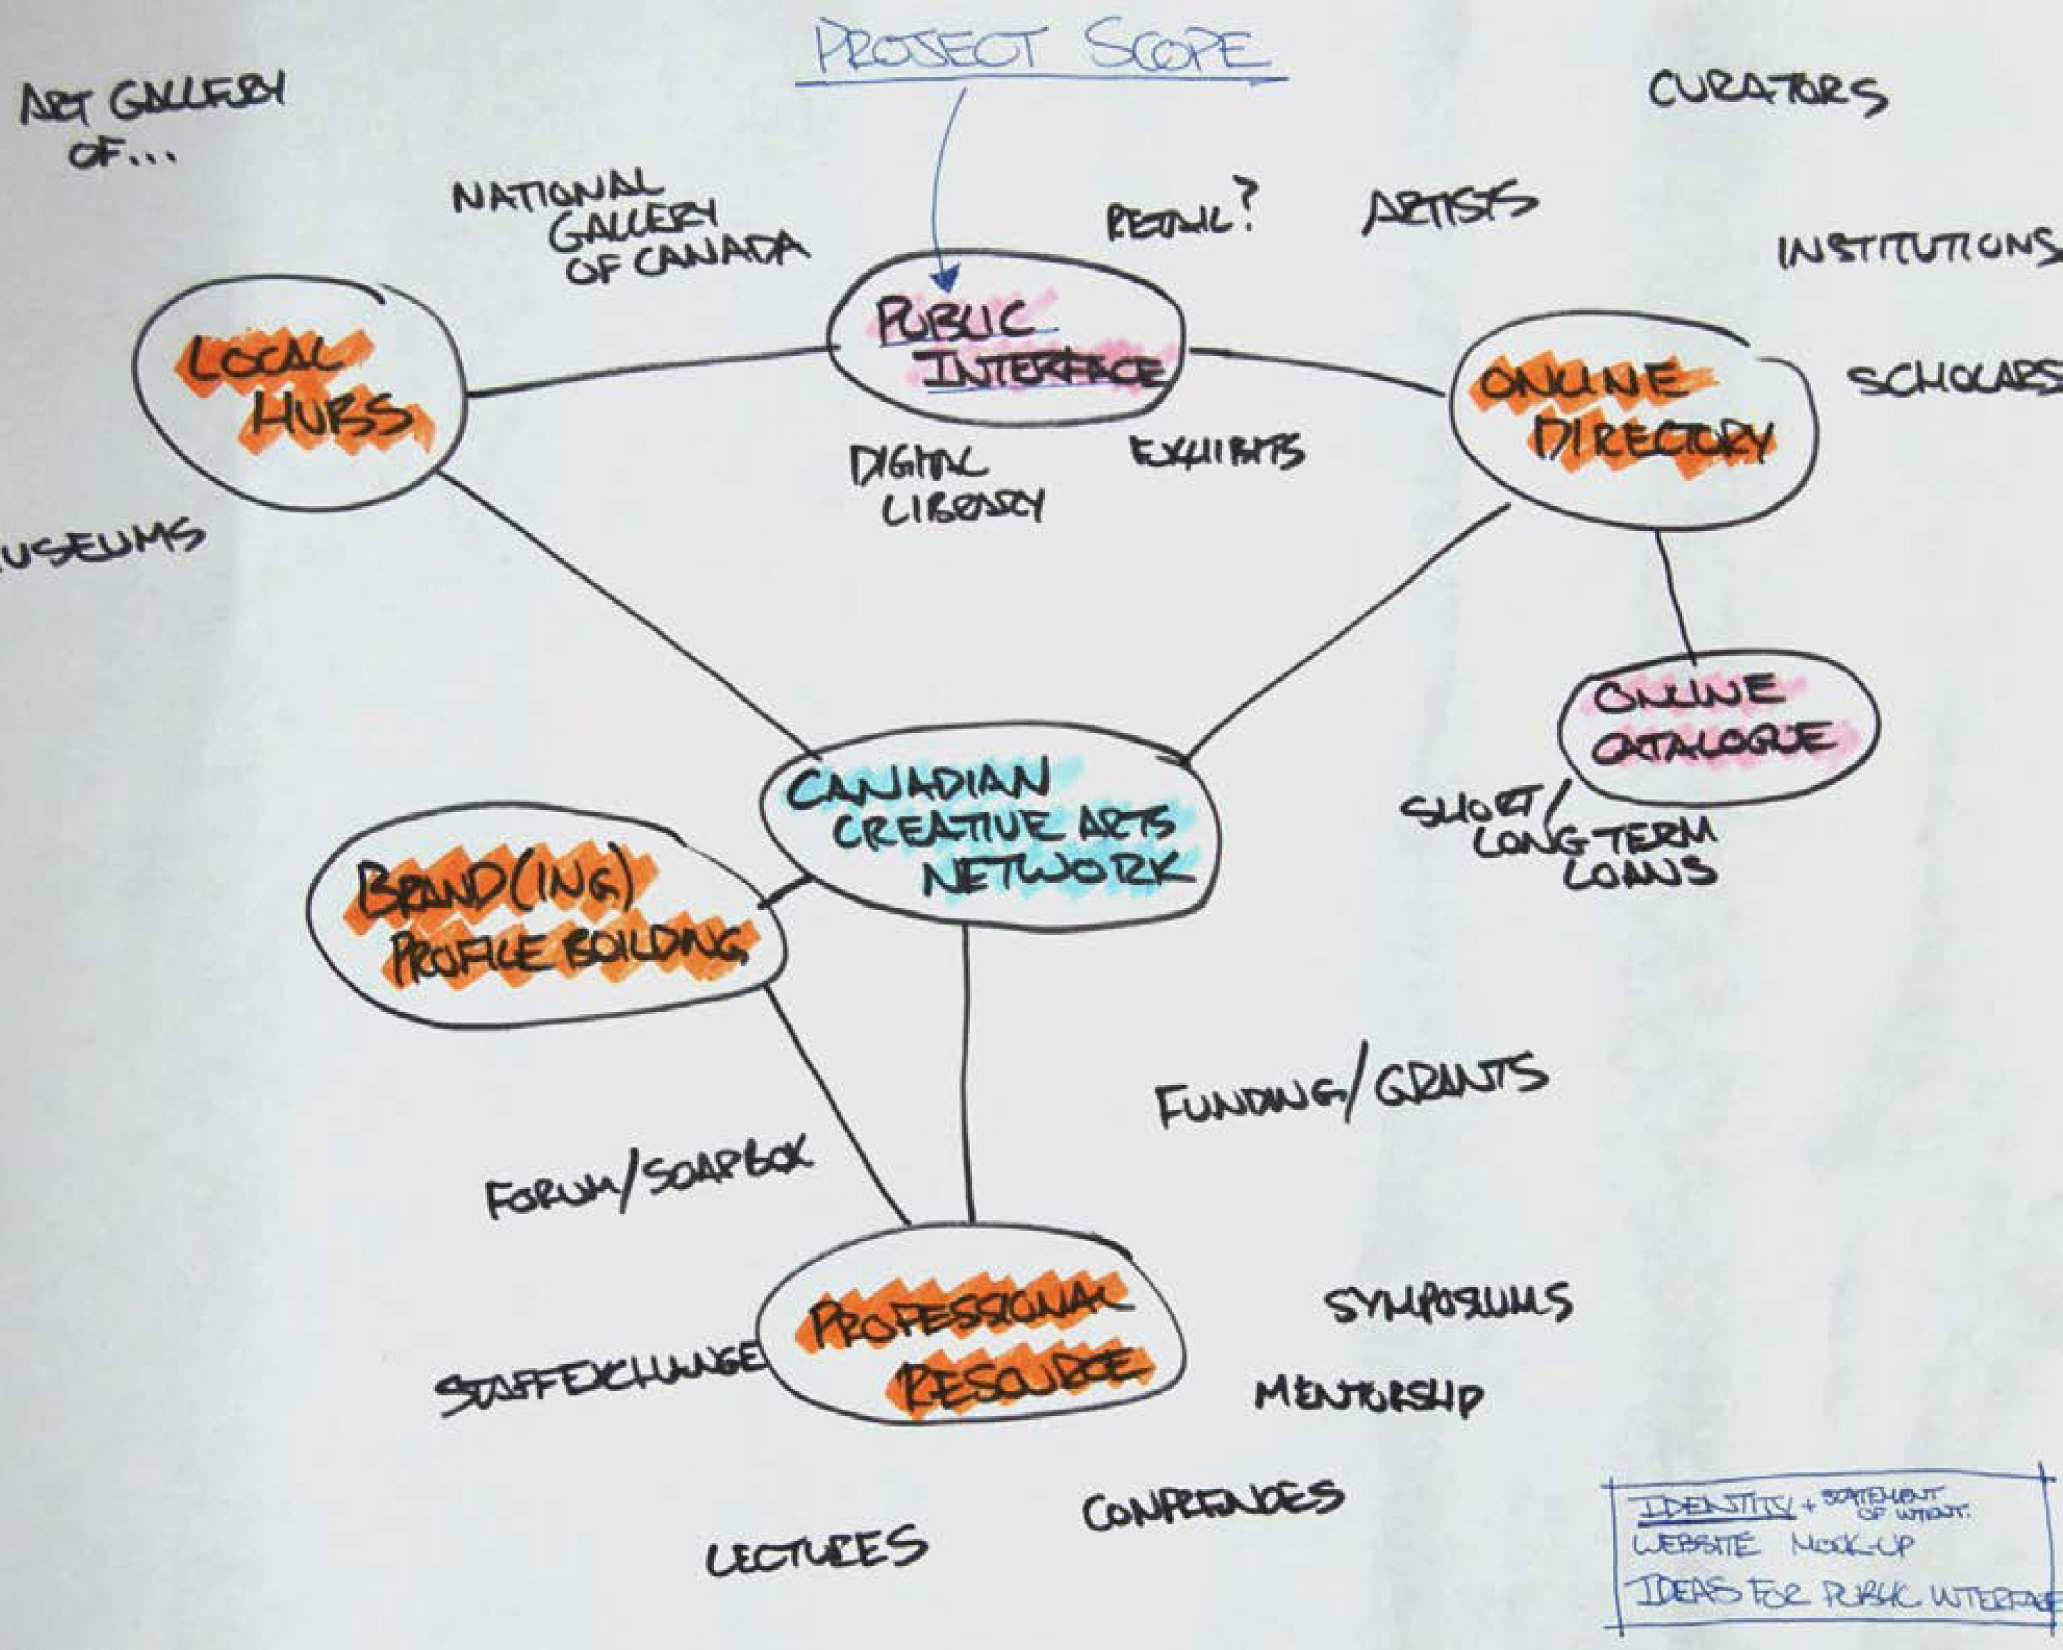 PROJECT SCOPE
ART GALLERY
OF...
CURATORS
NATIONAL
GALLERY
OF CANADA
RETAIL?
ARTISTS
INSTITUTIONS
PUBLIC
INTERFACE
LOCAL
HUBS
ONLINE
DIRECTORY
SCHOLARS
DIGITAL
LIBRARY
EXHIBITS
USEUMS
ONLINE
CATALOGUE
SHORT/
LONG TERM
LOANS
CANADIAN
CREATIVE ARTS
NETWORK
BRAND(ING)
PROFILE BUILDING
FUNDING/GRANTS
FORUM/SOAPBOX
PROFESSIONAL
RESOURCE
SYMPOSIUMS
STAFF EXCHANGE
MENTORSHIP
CONFRENCES
LECTURES
IDENTITY + STATEMENT
OF INTENT.
WEBSITE MOCK-UP
IDEAS FOR PUBLIC INTERFACE